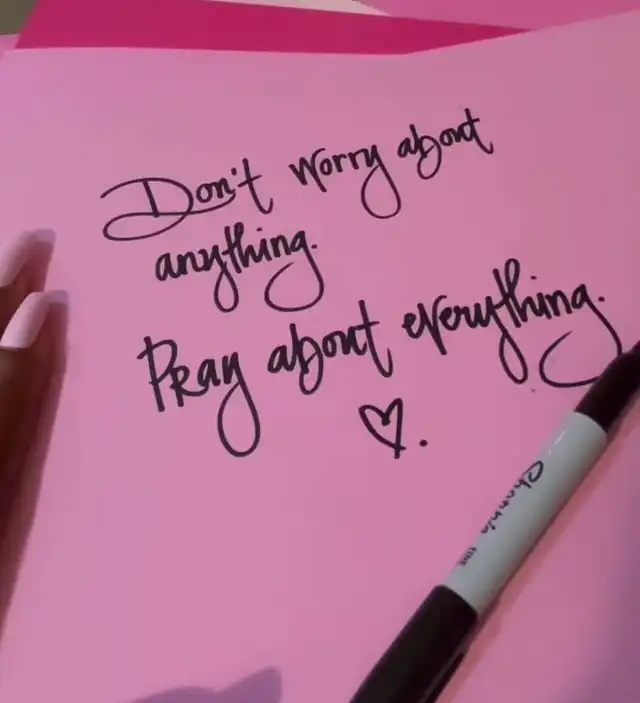 Don't worry about
anything.
Pray about everything.
Sharpie
FINE